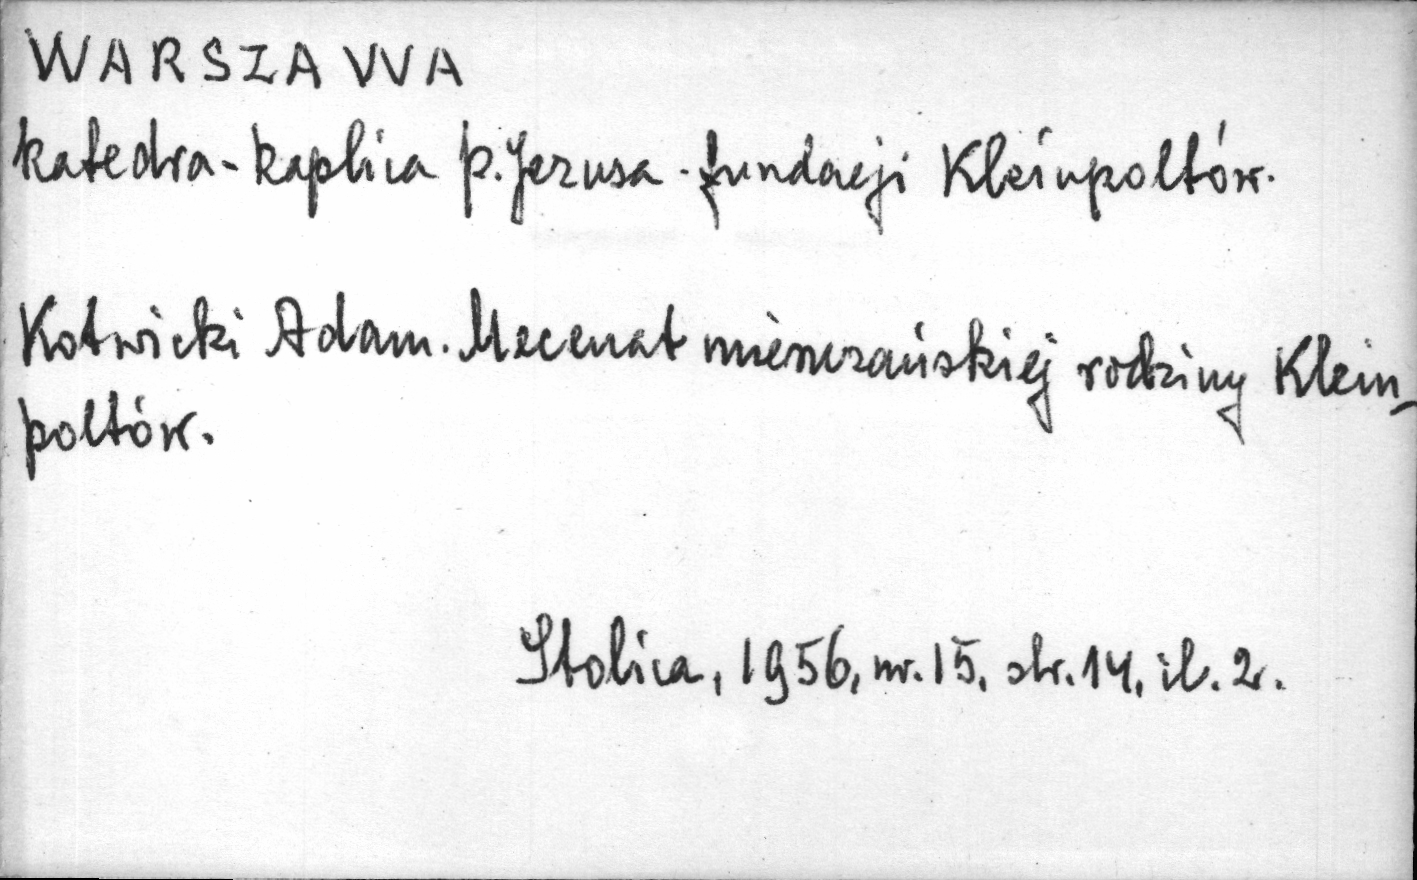 WARSZAWA
katedra-kaplica p. Jezusa - fundacji Kleinpoltów.
Kotwicki Adam. Mecenat mieszczańskiej rodziny Klein-
poltów.
Stolica, 1956, nr. 15, str. 14, il. 2.